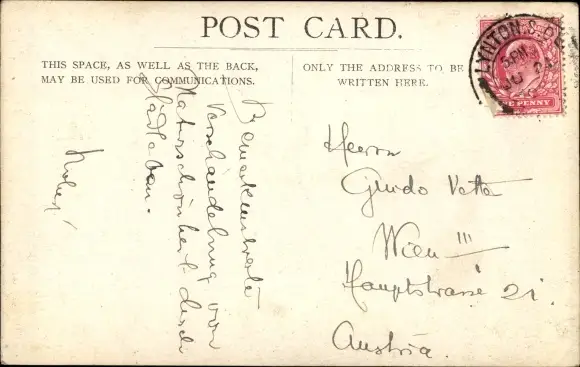 POST CARD.
THIS SPACE, AS WELL AS THE BACK,
MAY BE USED FOR COMMUNICATIONS.
ONLY THE ADDRESS TO BE
WRITTEN HERE.
LYNTON S.O.
NE PENNY
Bemerkenswerte
Verschandelung von
Naturschönheit durch
Städtebau.
Herrn
Guido Vetter
Wien III
Hauptstrasse 21.
Austria.